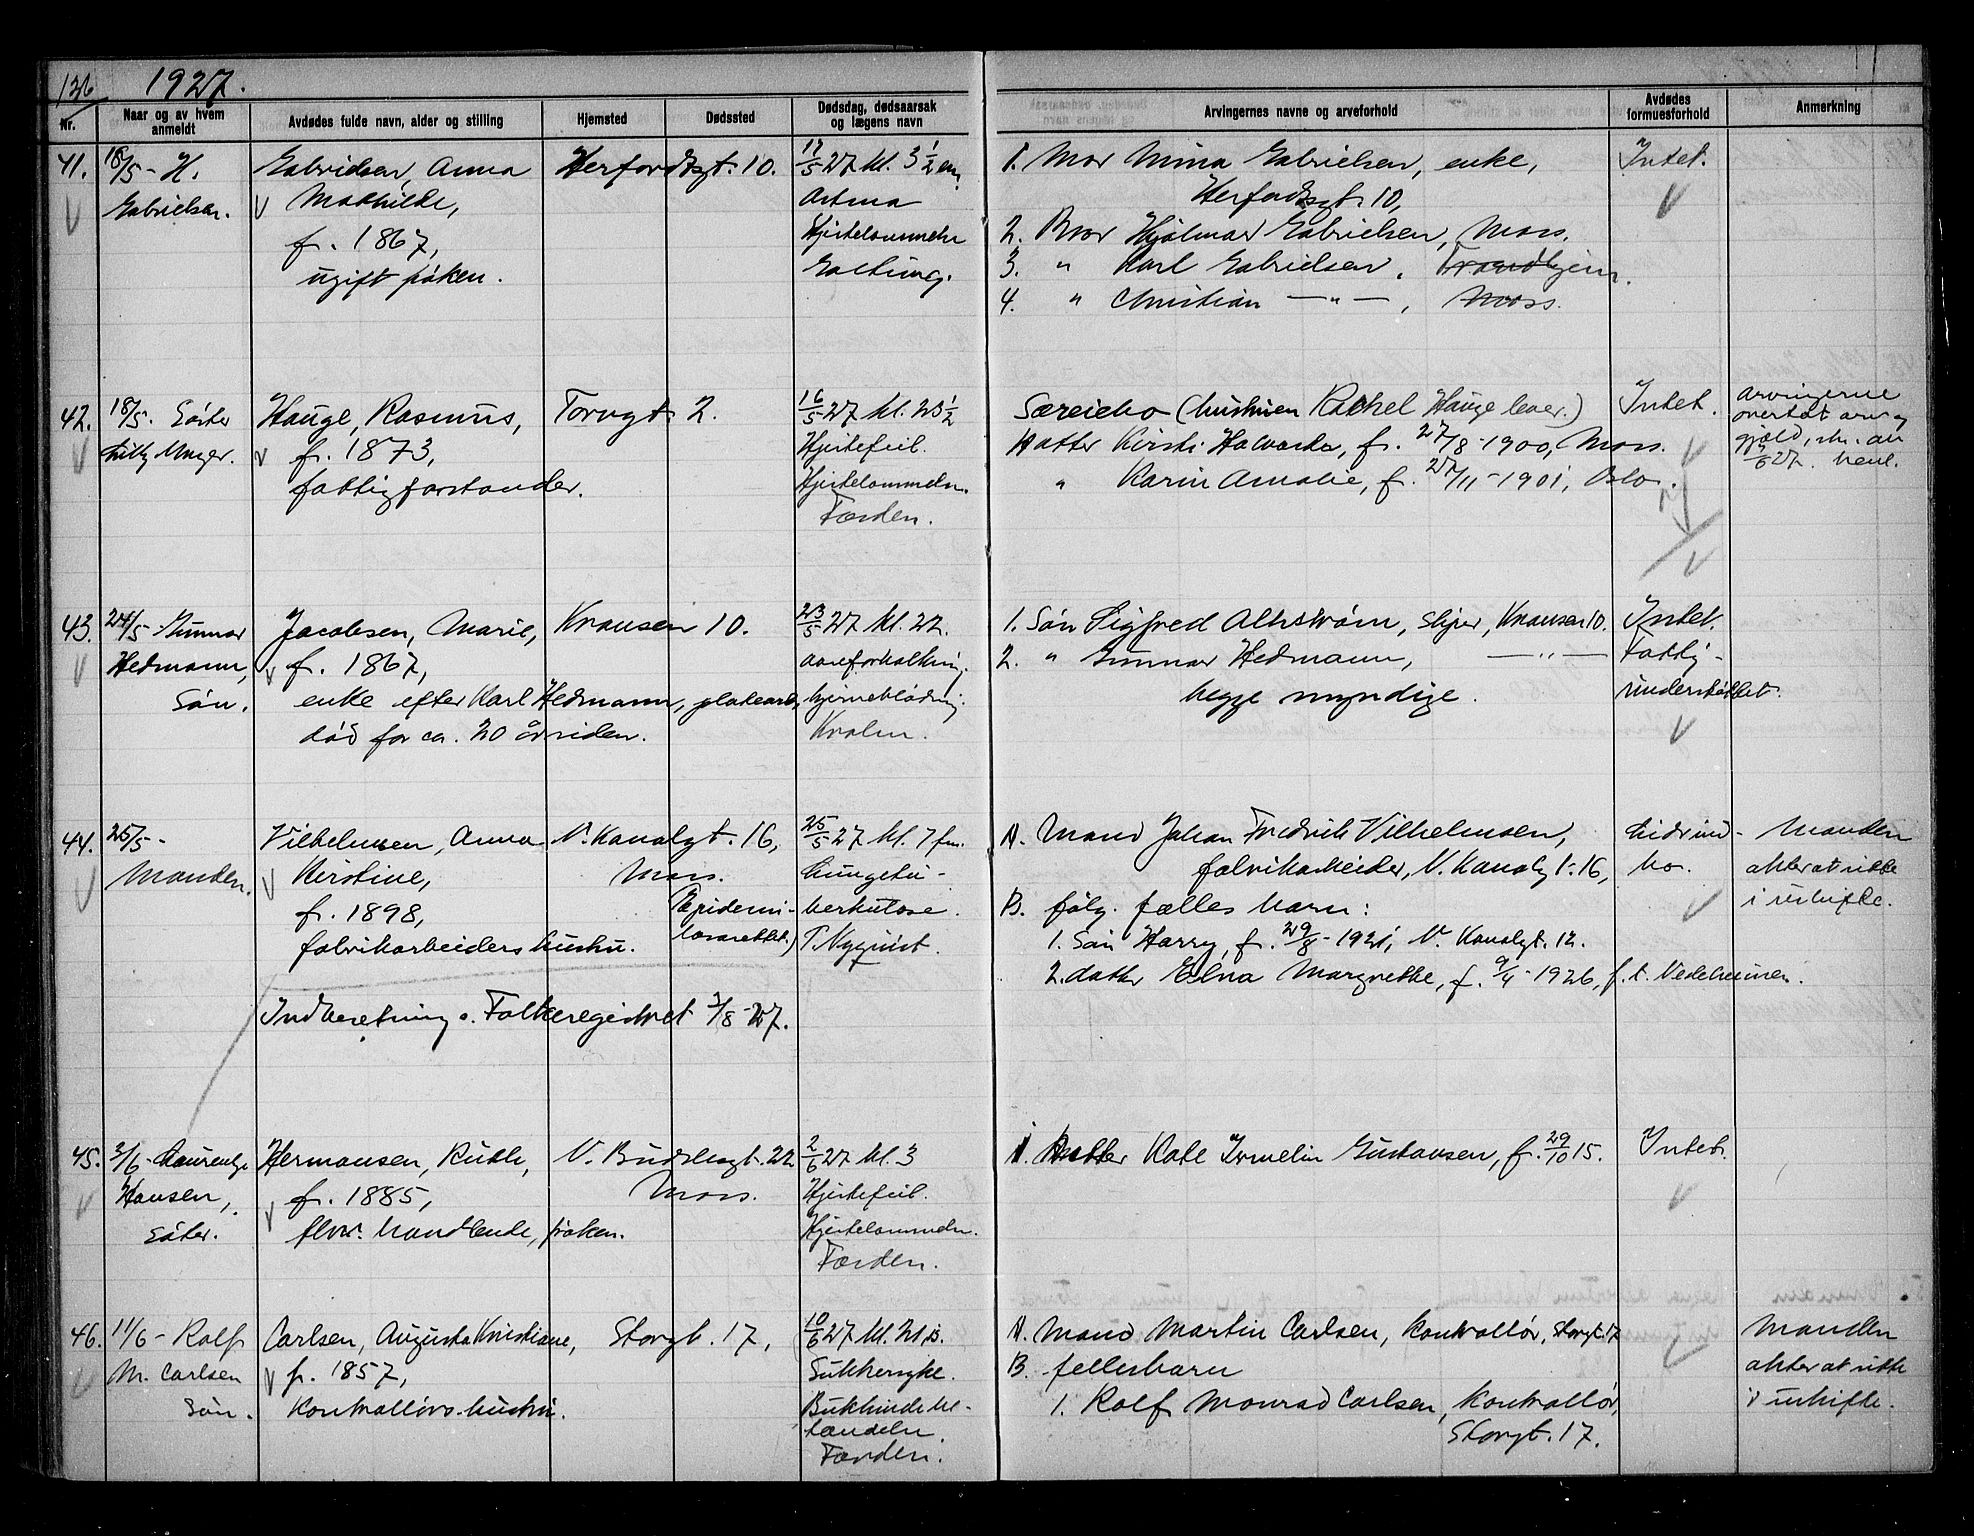 126
1927.
Nr.
Naar og av hvem anmeldt
Avdødes fulde navn, alder og stilling
Hjemsted
Dødssted
Dødsdag, dødsaarsak og lægens navn
Arvingernes navne og arveforhold
Avdødes formuesforhold
Anmerkning
41.
18/5 - H.
Gabrielsen.
Gabrielsen, Anna
Mathilde,
f. 1867,
ugift frøken.
Herfordtsgt. 10.
17/5 27 kl. 3 1/2 em.
Astma
Hjertelammelse
Galtung.
1. Mor Mina Gabrielsen, enke,
Herfordtsgt. 10,
2. Bror Hjalmar Gabrielsen, Moss.
3. " Karl Gabrielsen, Trondhjem.
4. " Christian — " —, Moss.
Intet.
42.
18/5. Søster
Lilly Unger.
Hauge, Rasmus,
f. 1873,
fattigforstander.
Torvgt. 2.
16/5 27 kl. 23 1/2
Hjertefeil.
Hjertelammelse.
Færden.
Særeiebo (hustruen Rakel Hauge lever.)
Datter Kirsti Halvarda, f. 27/8-1900, Moss.
" Karin Amalie, f. 27/11-1901, Oslo.
Intet.
Arvingerne
overtat arv og
gjæld, skr. av
27.
43.
24/5 - Gunnar
Hedmann,
Søn.
Jacobsen, Marie,
f. 1867,
enke efter Karl Hedmann, platearb.,
død for ca. 20 år siden.
Kransen 10.
23/5 27 kl. 22.
Aareforkalkning.
hjerneblødning.
Krohn.
1. Søn Sigfred Alhstrøm, sliper, Kransen 10.
2. " Gunnar Hedmann, — " —
begge myndige.
Intet.
Fattig-
understøttet.
44.
25/5 -
Manden.
Vilhelmsen, Anna
Kirstine,
f. 1898,
fabrikarbeiders hustru.
V. Kanalgt. 16,
Moss.
(Epidemi-
lasarettet.)
25/5 27 kl. 7 fm.
Lungetu-
berkulose.
T. Nyquist.
A. Mand Johan Fredrik Vilhelmsen,
fabrikarbeider, V. Kanalgt. 16,
B. følg. fælles barn:
1. Søn Harry, f. 29/8-1921, V. Kanalgt. 12.
2. datter Elna Margrethe, f. 9/4-1926, f. t. Vedeheimen.
Lidr ind-
bo.
Manden
akter at sitte
i uskifte.
Indberetning s. Folkeregistret 3/8-27.
45.
3/6 - Laurentze
Hansen,
Søster.
Hermansen, Ruth,
f. 1885,
forr. handlende, frøken.
V. Budslugt. 22.
Moss.
2/6 27 kl. 3
Hjertefeil.
Hjertelammelse.
Færden.
1. Datter Kate Irmelin Gustavsen, f. 29/10 15.
Intet.
46.
11/6 - Rolf
M. Carlsen
Søn.
Carlsen, Augusta Kristiane,
f. 1857,
Kontrollørs hustru.
Storgt. 17,
10/6 27 kl. 21.15.
Sukkersyke.
Bukhindebe-
tændelse.
Færden.
A. Mand Martin Carlsen, kontrollør, Storgt. 17
B. fellesbarn
1. Rolf Monrad Carlsen, kontrollør,
Storgt. 17.
Manden
akter at sitte
i uskifte.